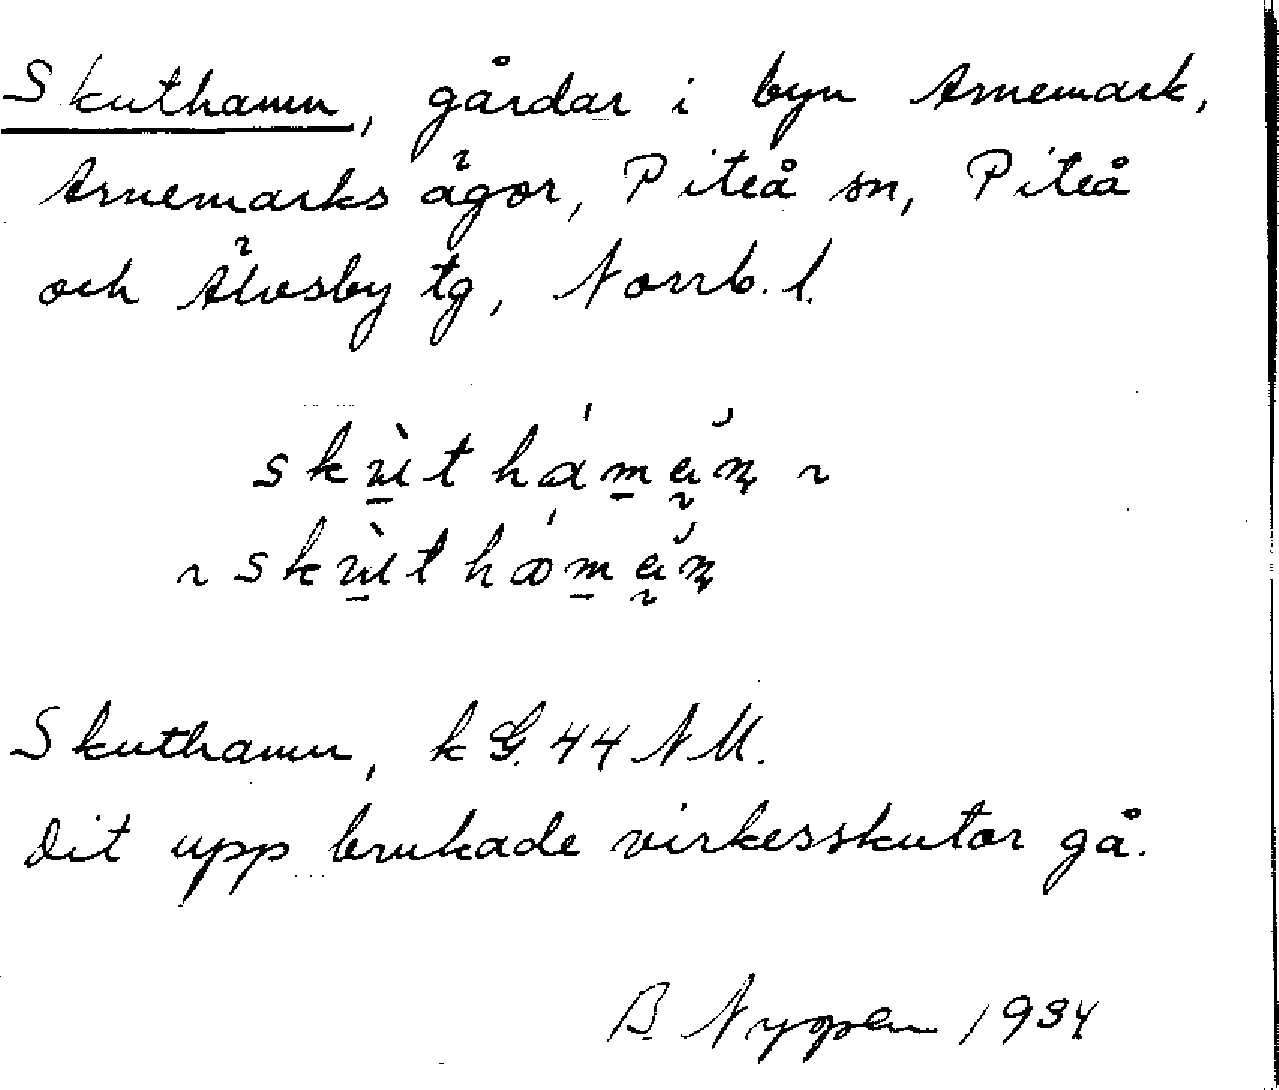 Skuthamn, gårdar i byn Arnemark,
Arnemarks ägor, Piteå sn, Piteå
och Älvsby tg, Norrb. l.
Skuthamn, kG. 44 NM.
Dit upp brukade virkesskutor gå.
B Nygren 1934